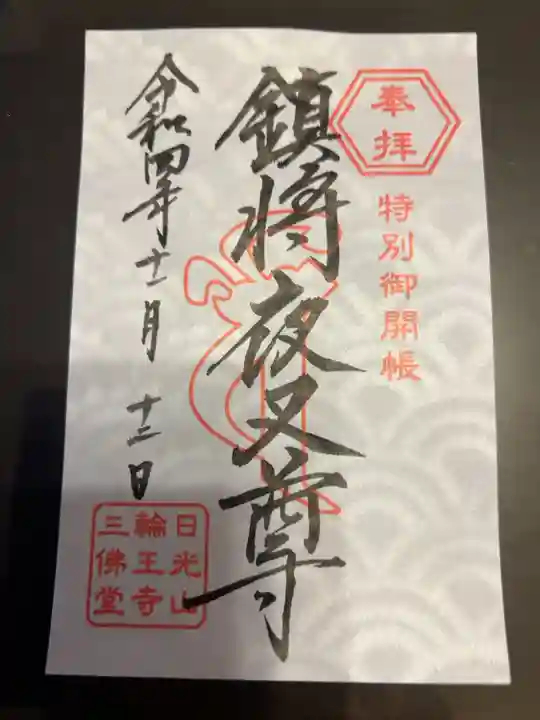 奉拝
特別御開帳
鎮将夜叉尊
令和四年十一月十二日
日光山
輪王寺
三佛堂